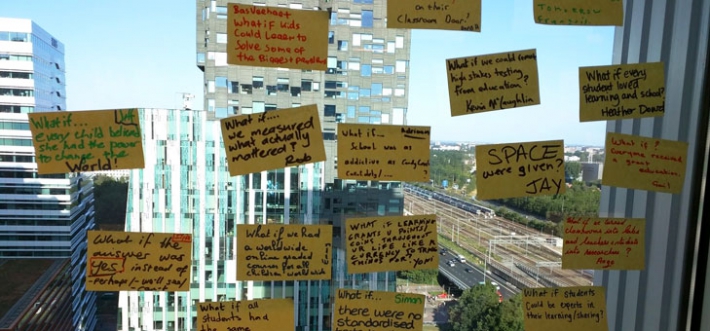 What if kids
Could Learn to
Solve some of
the Biggest problems
on their
Classroom Door!
Tomorrow
What if we could
high stakes testing
from education?
Kevin McLaughlin
What if every
student loved
learning and school?
Heather
What if...
every child believed
she had the power
to change the
World!
What if...
we measured
what actually
mattered?
What if...
School was as
addictive as
SPACE
were given?
JAY
What if?
Everyone received
a great
education.
What if the
answer was
Yes! instead of
-perhaps/-we'll see/
What if we had
a worldwide
online graded
common for all
Children worldwide
WHAT IF LEARNING
POINTS/
COINS THROUGHOUT
UR LIFE LIKE A
CURRENCY TO TRADE
THINGS FOR?
What if we turned
classrooms into labs
and teachers & students
into researchers?
What if all
students had
the same
What if... Simon
there were no
standardised
What if students
Could be experts in
their learning/sharing?